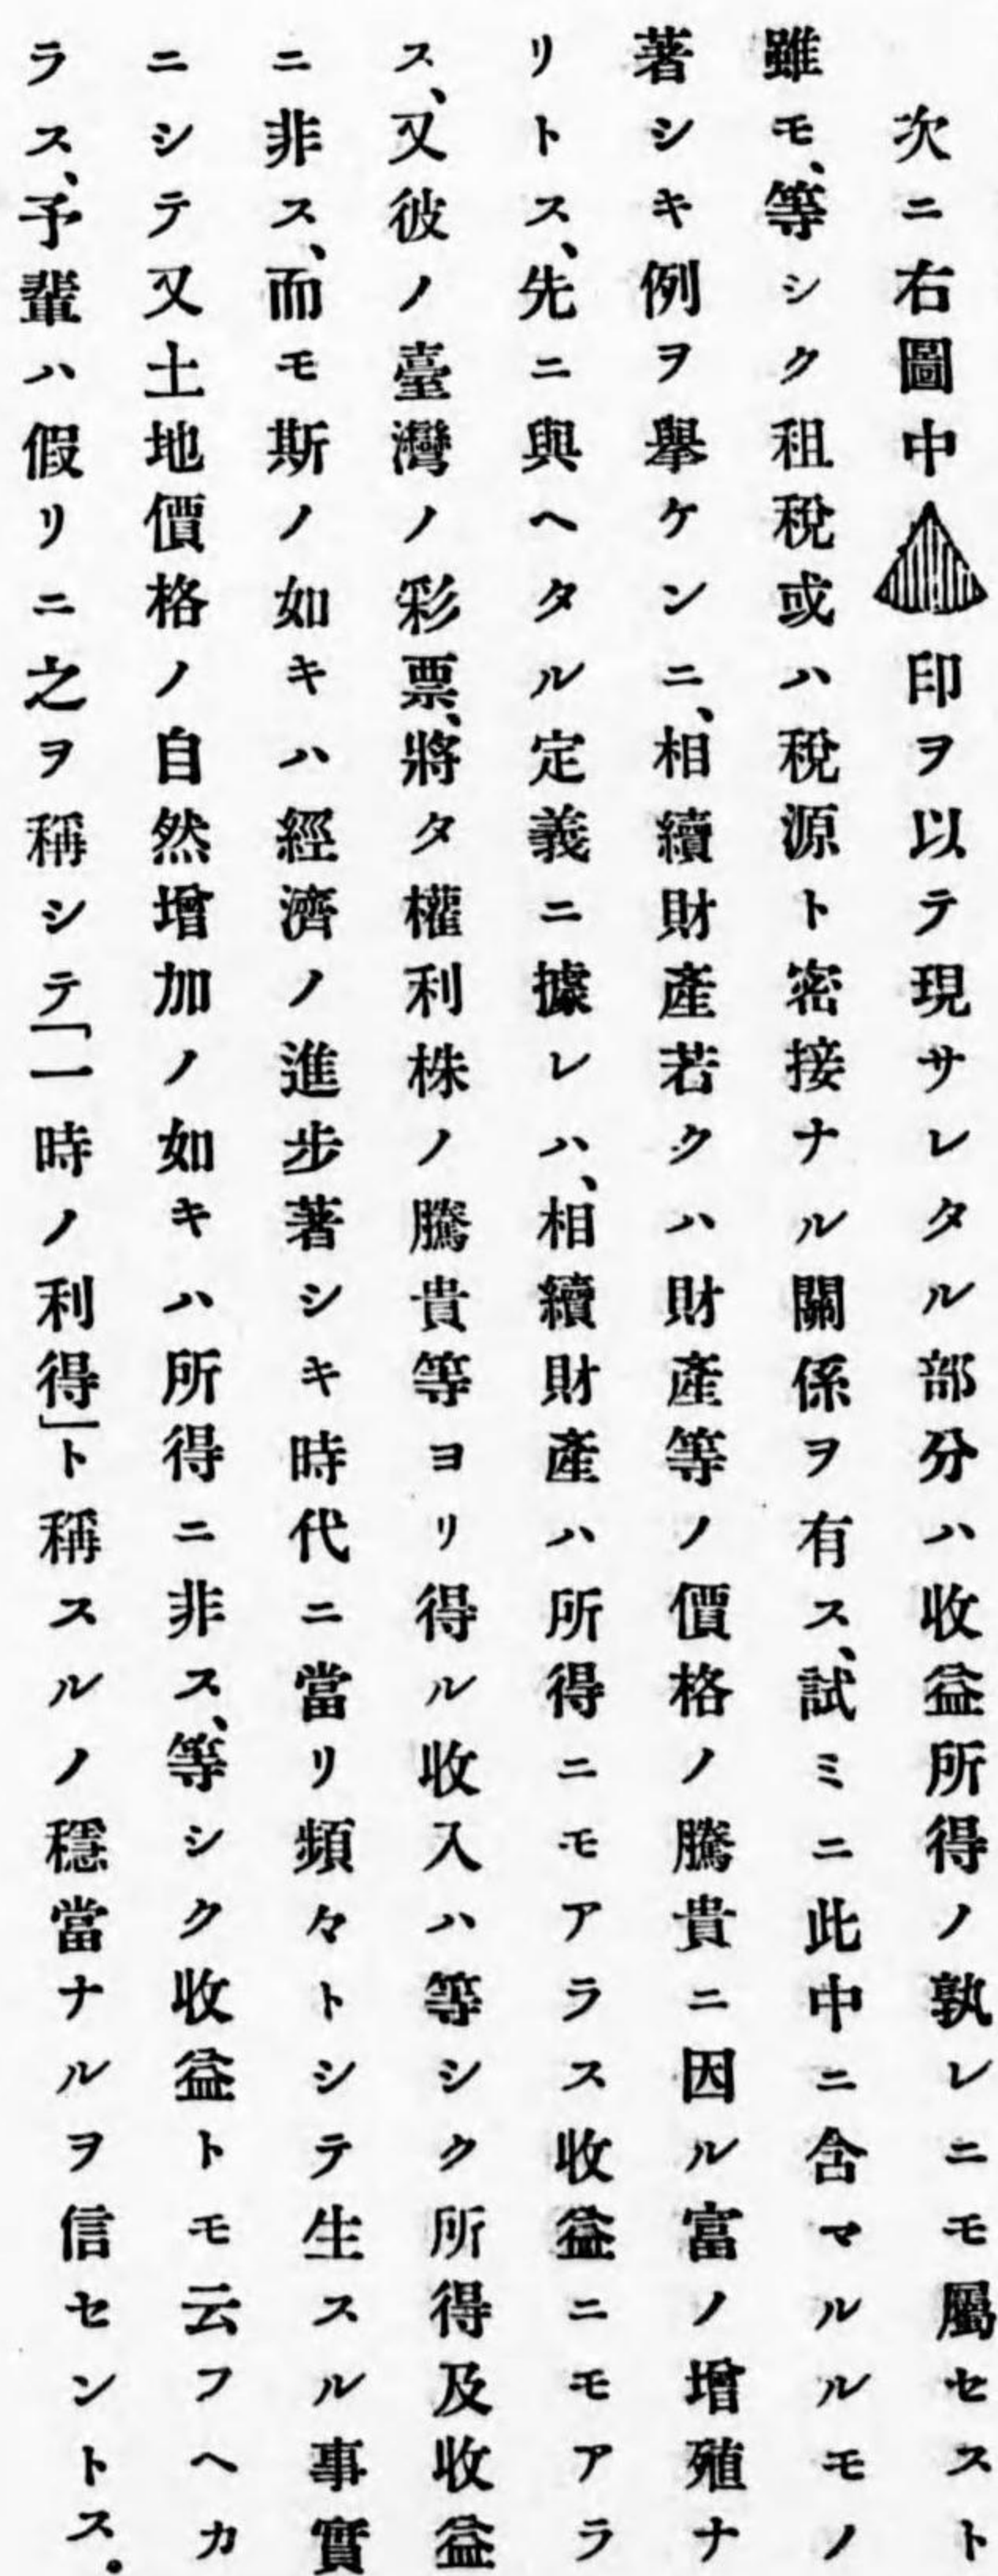 次ニ右圖中印ヲ以テ現サレタル部分ハ收益所得ノ孰レニモ屬セスト
雖モ、等シク租稅或ハ稅源ト密接ナル關係ヲ有ス、試ミニ此中ニ含マルルモノ
著シキ例ヲ擧ケンニ、相續財產若クハ財產等ノ價格ノ騰貴ニ因ル富ノ增殖ナ
リトス、先ニ與ヘタル定義ニ據レハ、相續財產ハ所得ニモアラス收益ニモアラ
ス、又彼ノ臺灣ノ彩票、將タ權利株ノ騰貴等ヨリ得ル收入ハ等シク所得及收益
ニ非ス、而モ斯ノ如キハ經濟ノ進步著シキ時代ニ當リ頻々トシテ生スル事實
ニシテ又土地價格ノ自然增加ノ如キハ所得ニ非ス、等シク收益トモ云フヘカ
ラス、予輩ハ假リニ之ヲ稱シテ「一時ノ利得」ト稱スルノ穩當ナルヲ信セントス。